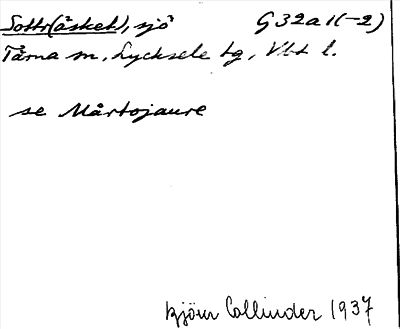 Sottr(åsket), sjö G 32a1(-2)
Tärna sn, Lycksele tg, Vbt l.
se Mårtojaure
Björn Collinder 1937